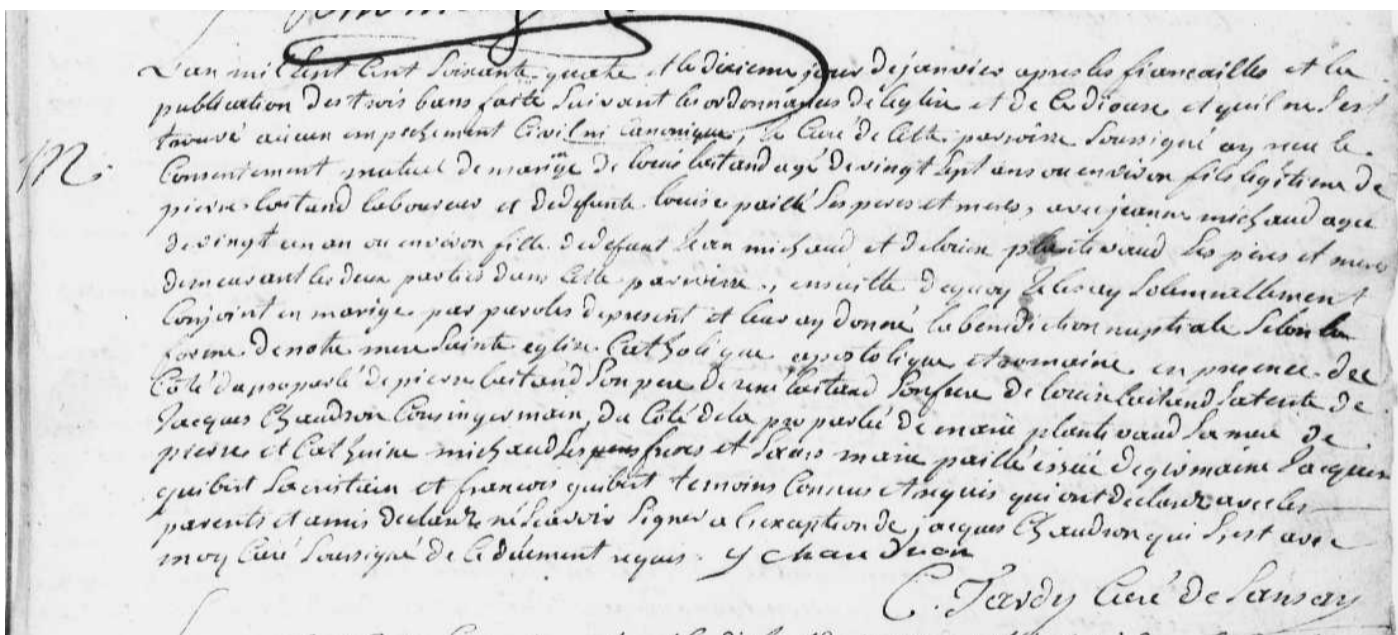 L'an mil sept cent soixante quatre et le dixieme jour de janvier apres les fiancailles et la
publication des trois bans faite suivant les ordonnances de leglise et de ce diocese et quil ne sest
trouvé aucun empechement civil ni canonique, le curé de cette paroisse soussigné ay receu le
M. consentement mutuel de mariage de louis agé de vingt sept ans ou environ fils legitime de
pierre laboureur et de defunte louise paillé ses peres et meres, avec jeanne michaud agee
de vingt un an ou environ fille de defunt jean michaud et de plantivaud ses peres et meres
demeurant les deux parties dans cette paroisse, ensuitte dequoy je les ay solemnellement
conjoint en marige par paroles de present et leur ay donné la benediction nuptiale selon la
forme de notre mere sainte eglise catholique apostolique et romaine en presence du
coté du proparlé de pierre son pere de rene son frere de louise sa tente de
jacques chaudron cousin germain, du coté de la proparlée de marie plantivaud sa mere de
pierre et catherine michaud ses freres et saurs marie paillé issue de germaine jacques
guibert sacristain et francois guibert temoins connus et requis qui ont declaré avec les
parents et amis declarez ne scavoir signer a lexception de jacques chaudron qui sest avec
moy curé soussigné de ce duement requis. J chaudron
C. Tardy curé de Sansay